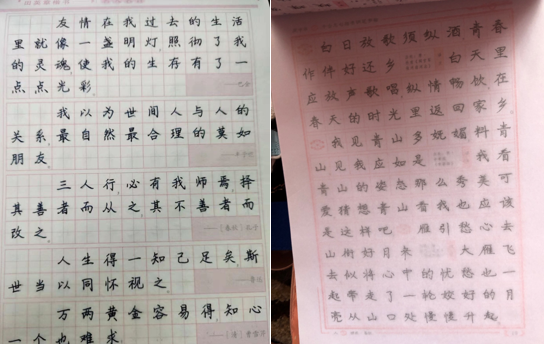 友情在我过去的生活
里就像一盏明灯,照彻了我
的灵魂,使我的生存有了一
点点光彩
——巴金
我以为世间人与人的
关系,最自然最合理的莫如
朋友.
三人行,必有我师焉,择
其善者而从之,其不善者而
改之.
人生得一知己足矣,斯
世当以同怀视之.
万两黄金容易得,知心
一个也难求
白日放歌须纵酒,青春
作伴好还乡 白天里
应放声歌唱纵情畅饮,在
春天的时光里返回家乡.
我见青山多妩媚,料青
山见我应如是 我看
青山的姿态那么秀美,可
爱,猜想青山看我也应该
是这样吧 雁引愁心去
山衔好月来 大雁飞
去似将心中的忧愁也一
起带走了一轮姣好的月
亮从山口处慢慢升起.